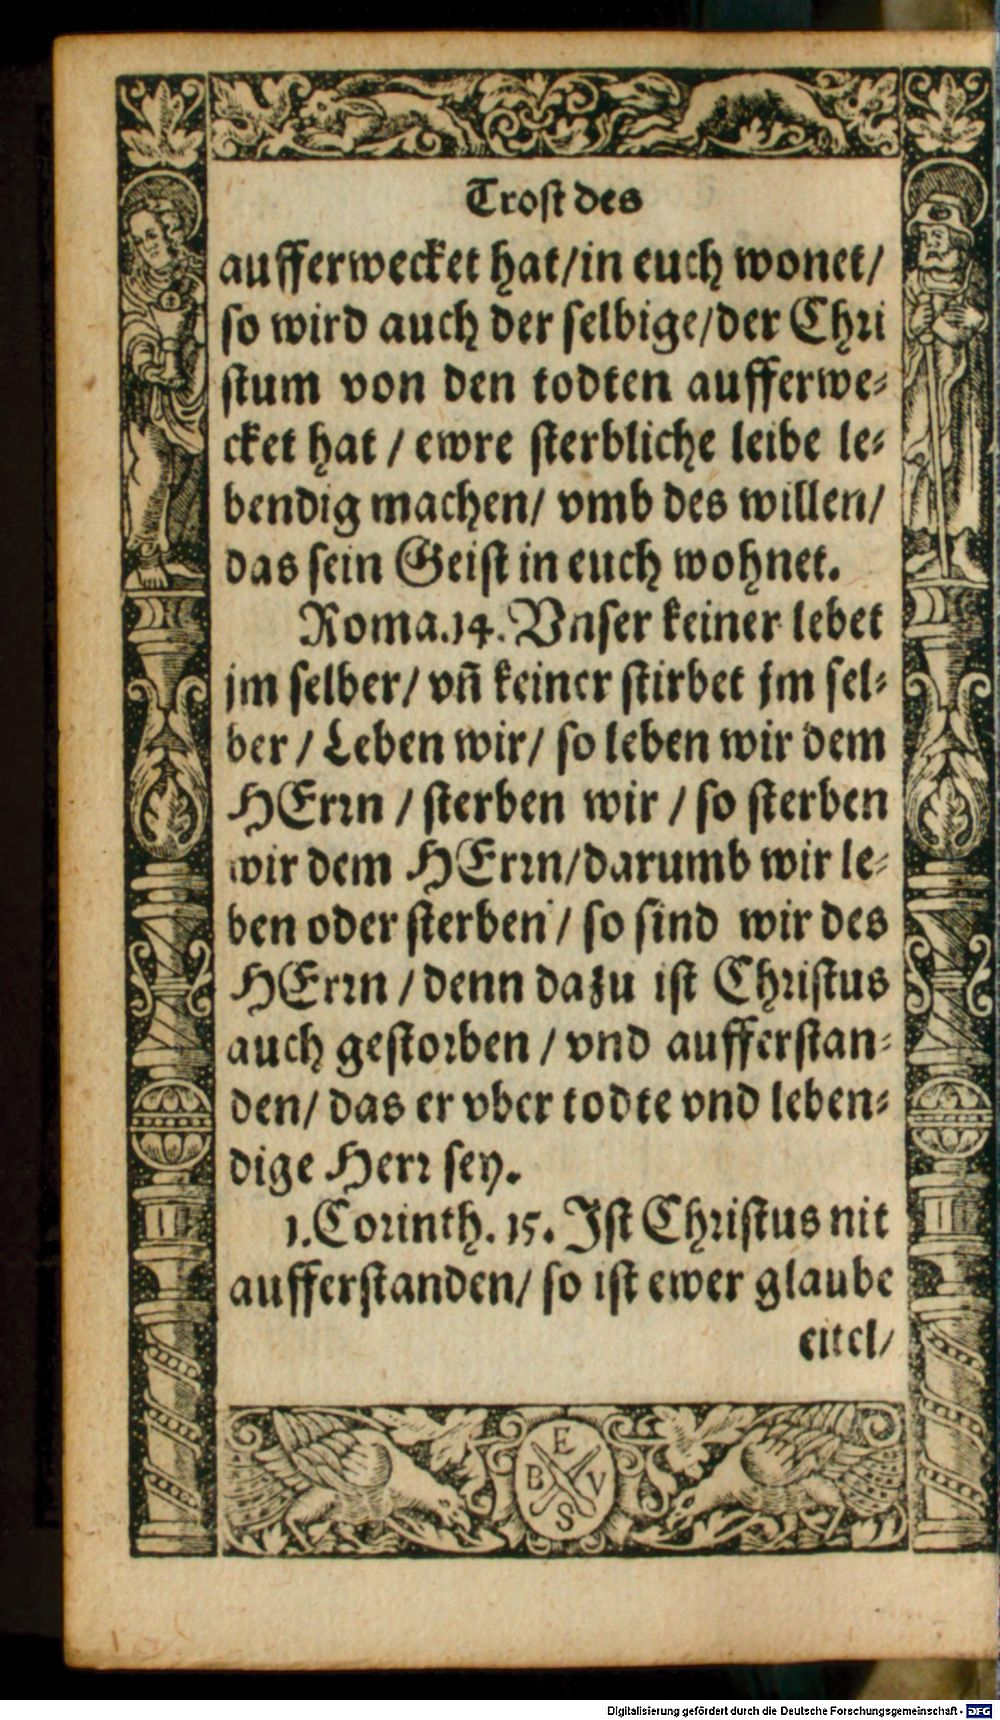 Trost des
aufferwecket hat/in euch wonet/
so wird auch der selbige/der Chri
stum von den todten aufferwe⸗
cket hat / ewre sterbliche leibe le⸗
bendig machen/ vmb des willen/
das sein Geist in euch wohnet.
Roma.14. Vnser keiner lebet
jm selber/ vñ keiner stirbet jm sel⸗
ber / Leben wir/ so leben wir dem
HErrn / sterben wir / so sterben
wir dem HErrn/darumb wir le⸗
ben oder sterben / so sind wir des
HErrn / denn dazu ist Christus
auch gestorben / vnd aufferstan⸗
den/ das er vber todte vnd leben⸗
dige Herr sey.
1.Corinth. 15. Ist Christus nit
aufferstanden/ so ist ewer glaube
eitel/
E
B V
S
Digitalisierung gefördert durch die Deutsche Forschungsgemeinschaft - DFG